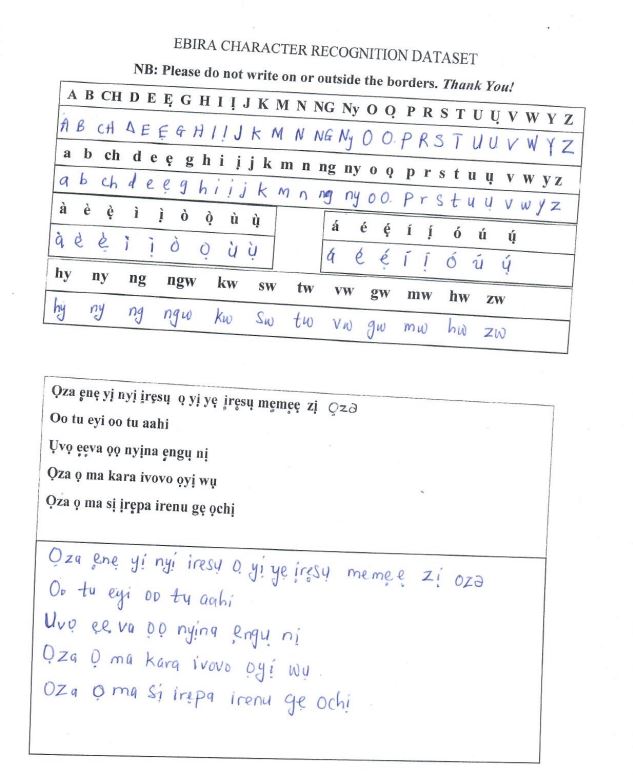 EBIRA CHARACTER RECOGNITION DATASET
NB: Please do not write on or outside the borders. Thank You!
A B CH D E Ẹ G H I Ị J K M N NG Ny O Ọ P R S T U Ụ V W Y Z
A B CH D E Ẹ G H I Ị J K M N NG Ny O O. P R S T U U V W Y Z
a b ch d e ẹ g h i ị j k m n ng ny o ọ p r s t u ụ v w y z
a b ch d e ẹ g h i ị j k m n ng ny o o. p r s t u ụ v w y z
à è ẹ̀ ì ị̀ ò ọ̀ ù ụ̀
à è ẹ̀ ì ị̀ ò ọ ù ụ̀
á é ẹ́ í ị́ ó ú ụ́
á é ẹ́ í ị́ ó ú ụ́
hy ny ng ngw kw sw tw vw gw mw hw zw
hy ny ng ngw kw sw tw vw gw mw hw zw
Ọza ẹnẹ yị nyị ịrẹsụ ọ yị yẹ ịrẹsụ mẹmẹẹ zị ọzə
Oo tu eyi oo tu aahi
Ụvọ ẹẹva ọọ nyịna ẹngụ nị
Ọza ọ ma kara ivovo ọyị wụ
Ọza ọ ma sị ịrẹpa irenu gẹ ọchị
Ọza ẹnẹ yị nyị iresụ ọ yị yẹ ịrẹsụ memẹẹ zị ozə
Oo tu eyi oo tu aahi
Uvọ ẹẹva ọọ nyịna ẹngụ nị
Ọza ọ ma kara ivovo ọyị wụ
Oza ọ ma sị irẹpa irenu gẹ ochị